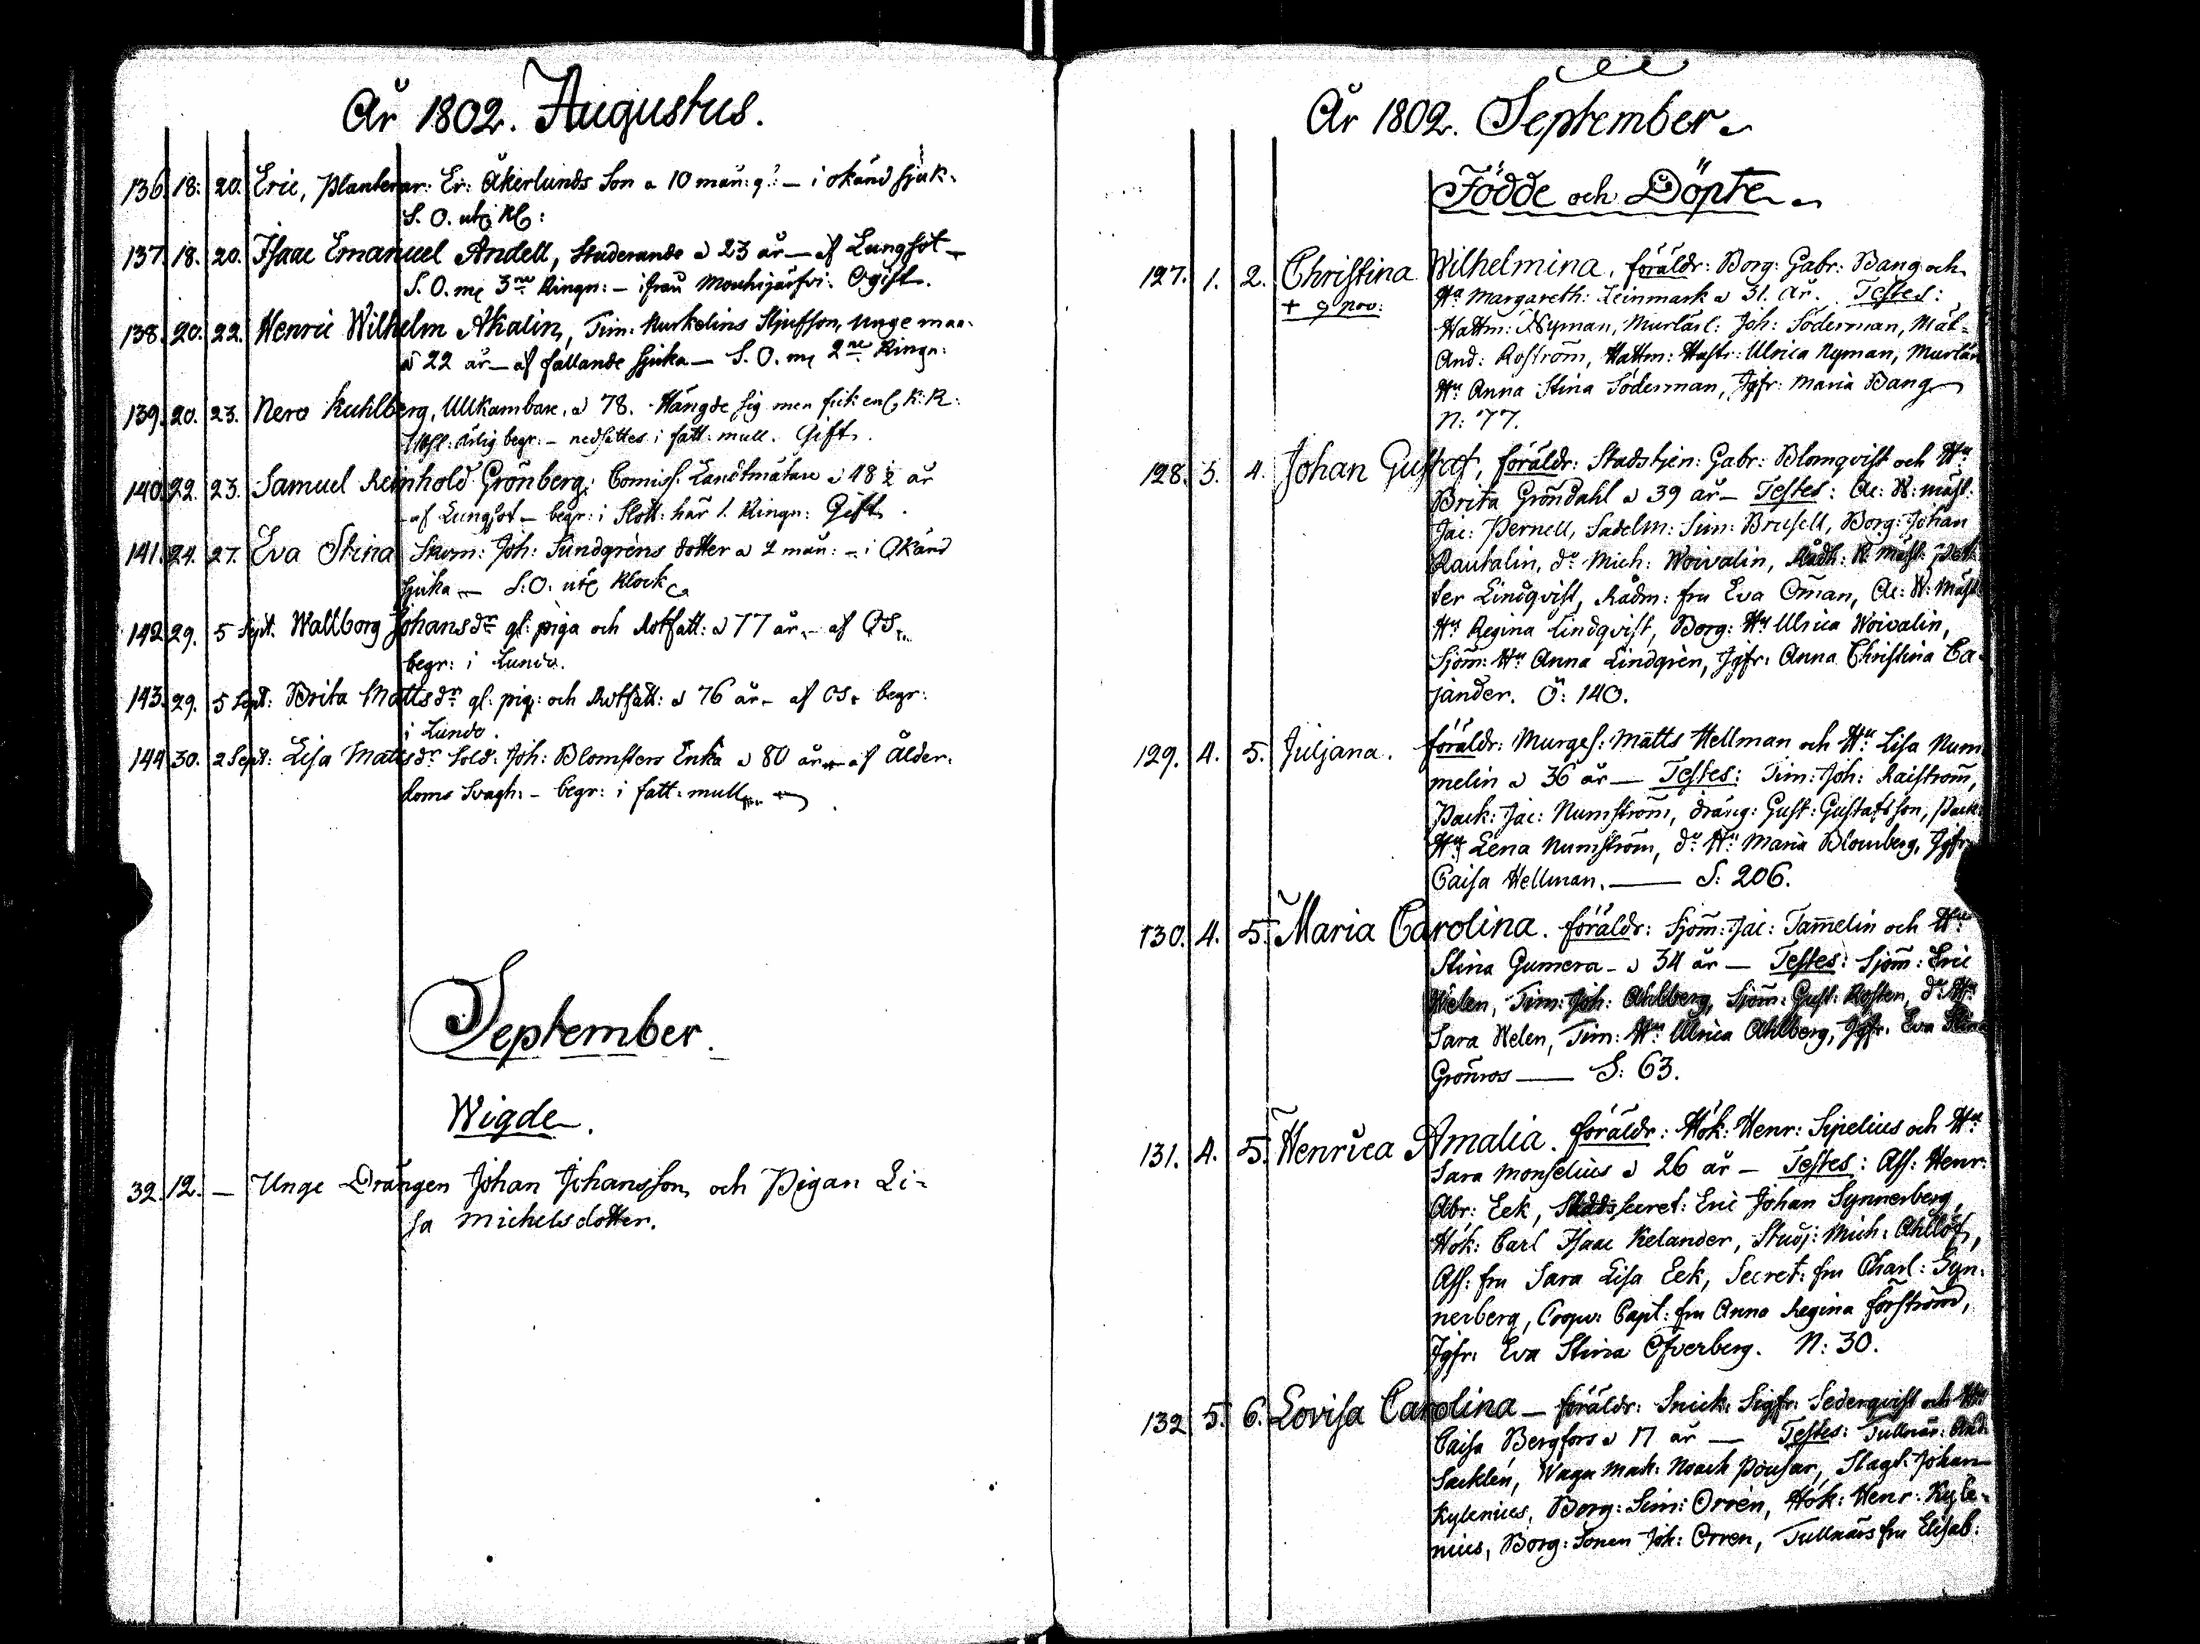 År 1802. Augustus.
136. 18. 20. Eric, Plantenar: Er: Åkerlunds Son a 10 mån: g: — i okänd sjuk.
S. O. utj Kl:
137. 18. 20. Isaac Emanuel Andell, Studerande a 23 år — af Lungsot —
S. O. mz 3ne Ringn: — ifrån Mouhijärfvi. Ogift.
138. 20. 22. Henric Wilhelm Akalin, Tim: Kurkelins Stjufson, Unge man
a 22 år — af fallande sjuka — S. O. mz 2ne Ringn:
139. 20. 23. Nero Kuhlberg, Ullkambare, a 78. Hängde sig men fick K: R:
ärlig begr: — nedsattes i fatt: mull. Gift.
140. 22. 23. Samuel Reinhold Grönberg, Comiss. Landtmätare a 48 ½ år
— af Lungsot — begr: i Slott: här 1. Ringn: Gift.
141. 24. 27. Eva Stina Skom: Joh: Sundgréns dotter a 2 mån: — i Okänd
sjuka — S. O. utj Klock
142. 29. 5 Sept. Wallborg Johansdr gl: piga och Rotfatt: a 77 år — af OS.
begr: i Lundo.
143. 29. 5 Sept: Brita Mattsdr gl: pig: och Rotfatt: a 76 år — af OS. begr:
i Lundo.
144. 30. 2 Sept: Lisa Mattsdr Sold: Joh: Blomsters Enka a 80 år — af Ålder-
doms Svagh: — begr: i fatt: mull
September.
Wigde.
32. 12. — Unge Drängen Johan Johansson och Pigan Li-
sa Michelsdotter.
År 1802. September
Födde och Döpte
127. 1. 2. Christina Wilhelmina. föräldr: Borg: Gabr: Bang och
+ 9 nov: Hu Margareth: Leinmark a 31. år. Testes:
Hattm: Nyman, Murlärl: Joh: Söderman, Mål-
And: Roström, Hattm: Hustr: Ulrica Nyman, Murlär
Hu Anna Stina Söderman, Jgfr: Maria Bang
N: 77.
128. 3. 4. Johan Gustaf, föräldr: Stadstjen: Gabr: Blomqvist och Hu
Brita Gröndahl a 39 år — Testes: Ac: W: mäst:
Jac: Pernell, Sadelm: Sim: Brusell, Borg: Johan
Rautalin, do Mich: Woivalin, Rådh: W. mäst: Pet-
ter Lindqvist, Rådm: fru Eva Öman, Ac: W: mäst
Hu Regina Lindqvist, Borg: Hu Ulrica Woivalin,
Sjöm: Hu Anna Lindgrén, Jgfr: Anna Christina Ca-
jander. Ö: 140.
129. 4. 5. Juljana. föräldr: Murges: Matts Hellman och Hu Lisa Num-
melin a 36 år — Testes: Tim: Joh: Raiström,
Pack: Jac: Numström, dräng: Gust: Gustafsson, Pack:
Hu Lena Numström, do Hu Maria Blomberg, Jgfr:
Caisa Hellman. — S: 206.
130. 4. 5. Maria Carolina. föräldr: Sjöm: Jac: Tam̄elin och Hu
Stina Gumera — a 34 år — Testes: Sjöm: Eric
Welen, Tim: Joh: Ahlberg, Sjöm: Gust: Rosten, do Hu
Sara Welen, Tim: Hu Ulrica Ahlberg, Jgfr. Eva Stina
Grönros — S: 63.
131. 4. 5. Henrica Amalia. föräldr: Hök: Henr: Sipelius och Hu
Sara Monselius a 26 år — Testes: Ass: Henr:
Abr: Eek, Stadssecret: Eric Johan Synnerberg,
Hök: Carl Isaac Kelander, Studj: Mich: Ahllöf,
Ass: fru Sara Lisa Eek, Secret: fru Charl: Syn-
nerberg, Coopv: Capt: fru Anna Regina Forström,
Jgfr: Eva Stina Öfverberg. N: 30.
132 5. 6. Lovisa Carolina — föräldr: Snick: Sigfr: Sederqvist och Hu
Caisa Bergfors a 17 år — Testes: Tullnär: And:
Sacklén, Wagn mak: Noach Pousar, Slagt: Johan
Kylenius, Borg: Sim: Orrén, Hök: Henr: Kyle-
nius, Borg: Sonen Joh: Orren, Tullnärs fru Elisab: